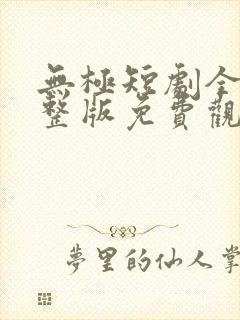 無極短劇全
整版免費觀
夢里的仙人掌